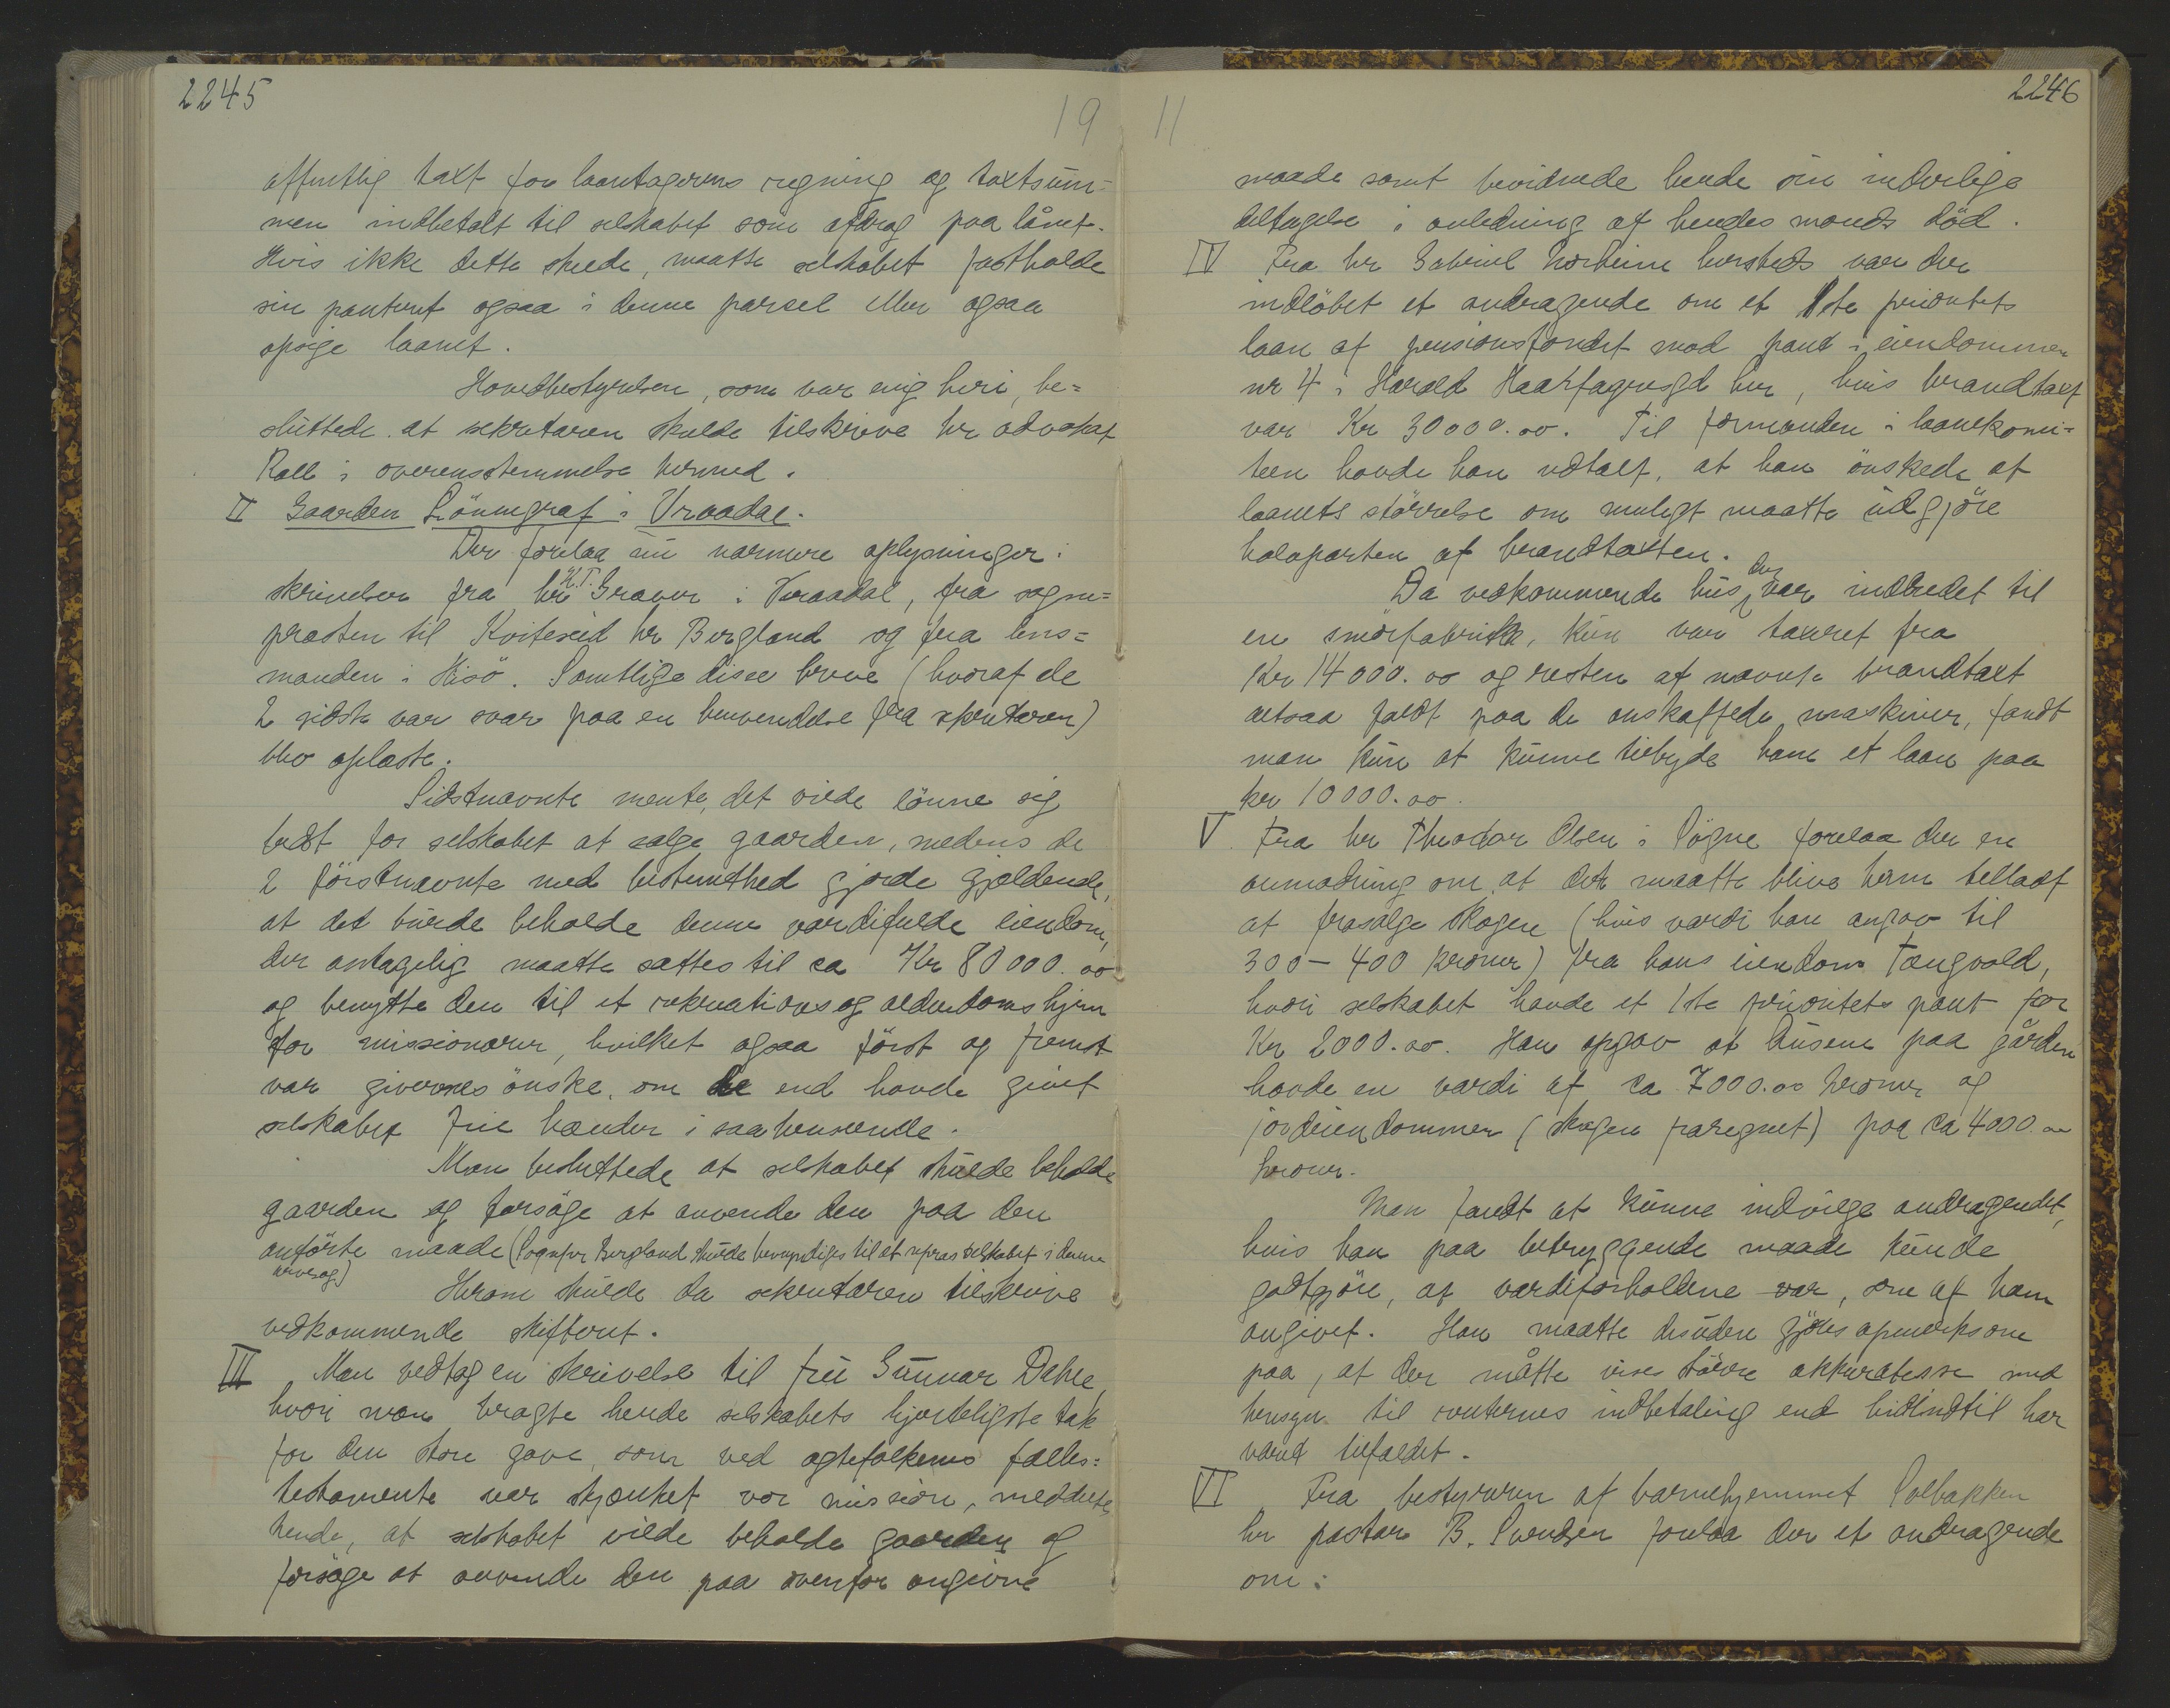 2245
19
offentlig taxt for laantagerens regning og taxtsum=
men indbetalt til selskabet som afdrag paa lånet.
Hvis ikke dette skeede, maatte selskabet fastholde
sin panteret ogsaa i denne parsel eller ogsaa
opsige laanet.
Hovedbestyrelsen, som var enig heri, be=
sluttede at sekretæren skulde tilskrive hr advokat
Kall i overensstemmelse hermed.
II Gaarden Lönnegraf i Vraadal.
Der forelaa nu nærmere oplysninger i
skrivelser fra hr H.T. Graver i Vraadal, fra sogne=
præsten til Kviteseid hr Bergland og fra lens=
manden i Hisö. Samtlige disse breve (hvoraf de
2 sidste var svar paa en henvendelse fra sekretæren)
blev oplæste.
Sidstnævnte mente, det vilde lönne sig
bedst for selskabet at sælge gaarden, medens de
2 förstnævnte med bestemthed gjorde gjældende,
at det burde beholde denne værdifulde eiendom,
der antagelig maatte sættes til ca Kr 80000.00
og benytte den til et rekreations og alderdomshjem
for missionærer, hvilket ogsaa först og fremst
var givernes önske, om de end havde givet
selskabet frie hænder i saa henseende.
Man besluttede at selskabet skulde beholde
gaarden og forsöge at anvende den paa den
anförte maade (Sognepr Bergland skulde bemyndiges til at repræs selskabet i denne
arvesag)
Herom skulde da sekretæren tilskrive
vedkommende skifteret.
III Man vedtog en skrivelse til fru Gunnar Dahle,
hvori man bragte hende selskabets hjerteligste tak
for den store gave, som ved ægtefolkenes fælles=
testamente var skjænket vor mission, meddelte
hende, at selskabet vilde beholde gaarden og
forsöge at anvende den paa ovenfor angivne
11
2246
maade samt bevidnede hende sin inderlige
deltagelse i anledning af hendes mands död.
IV Fra hr Gabriel hersteds var der
indlöbet et andragende om et 1ste prioritets
laan af pensionsfondet mod pant i eiendommen
nr 4 i Harald Haarfagresgd her, hvis brandtaxt
var Kr 30000.00. Til formanden i laanekomi=
teen havde han udtalt, at han önskede at
laanets störrelse om muligt maatte udgjöre
halvparten af brandtaxten.
Da vedkommende hus, der var indredet til
en smörfabrikk, kun var taxeret fra
Kr 14000.00 og resten af nævnte brandtaxt
altsaa faldt paa de anskaffede maskiner, fandt
man kun at kunne tilbyde ham et laan paa
kr 10000.00.
V Fra hr Theodor Olsen i Sögne forelaa der en
anmodning om at det maatte blive ham tilladt
at frasælge skogen (hvis værdi han angav til
300 - 400 kroner) fra hans eiendom Tangvald,
hvori selskabet havde et 1ste prioritets pant for
Kr 2000.00. Han opgav at husene paa gården
havde en værdi af ca 7000.00 kroner og
jordeiendommen (skogen fraregnet) paa ca 4000.00
kroner.
Man fandt at kunne indvilge andragendet,
hvis han paa betryggende maade kunde
godtgjöre, at værdiforholdene var, som af ham
angivet. Han maatte desuden gjöres opmerksom
paa, at der måtte vises större akkuratesse med
hensyn til renternes indbetaling end hidindtil har
været tilfældet.
VI Fra bestyreren af barnehjemmet Solbakken
hr pastor B. Svendsen forelaa der et andragende
om: